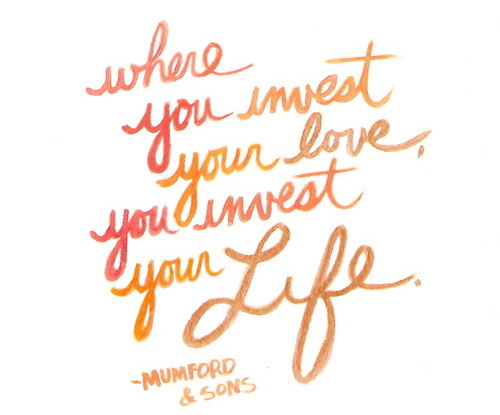 where
you invest
your love,
you invest
your Life.
-MUMFORD
& SONS